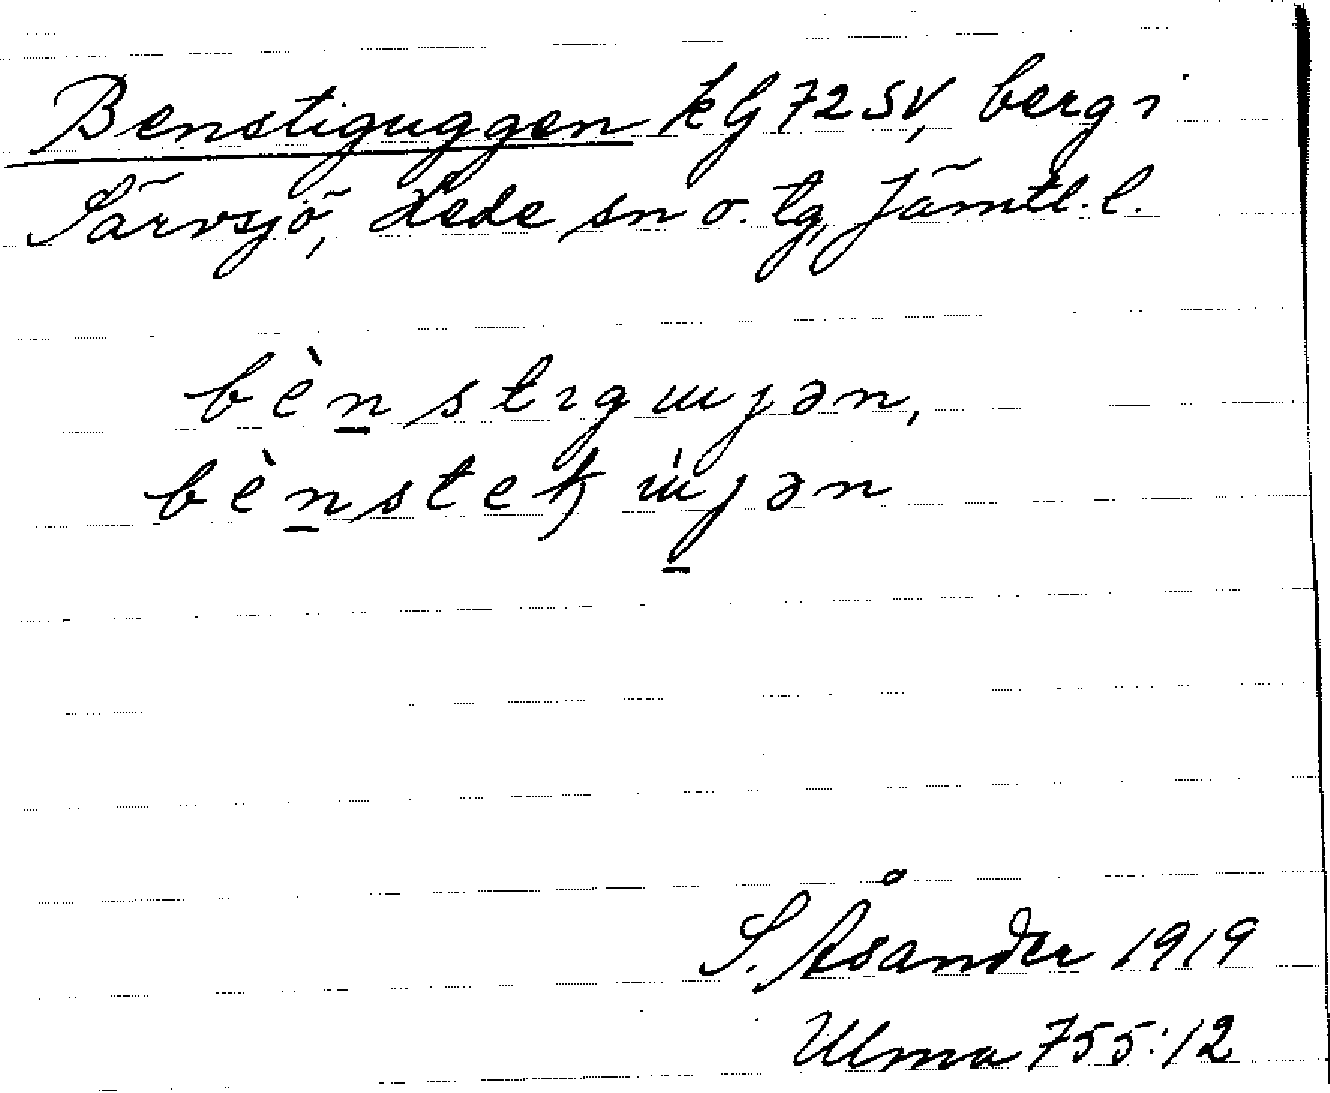 Benstiguggen kG 72 SV, berg i
Särvsjö, Hede sn o. tg, Jämtl. l.
bènstıgɯjən,
bènsteɯ̀jən
S. Åsander 1919
Ulma 755:12